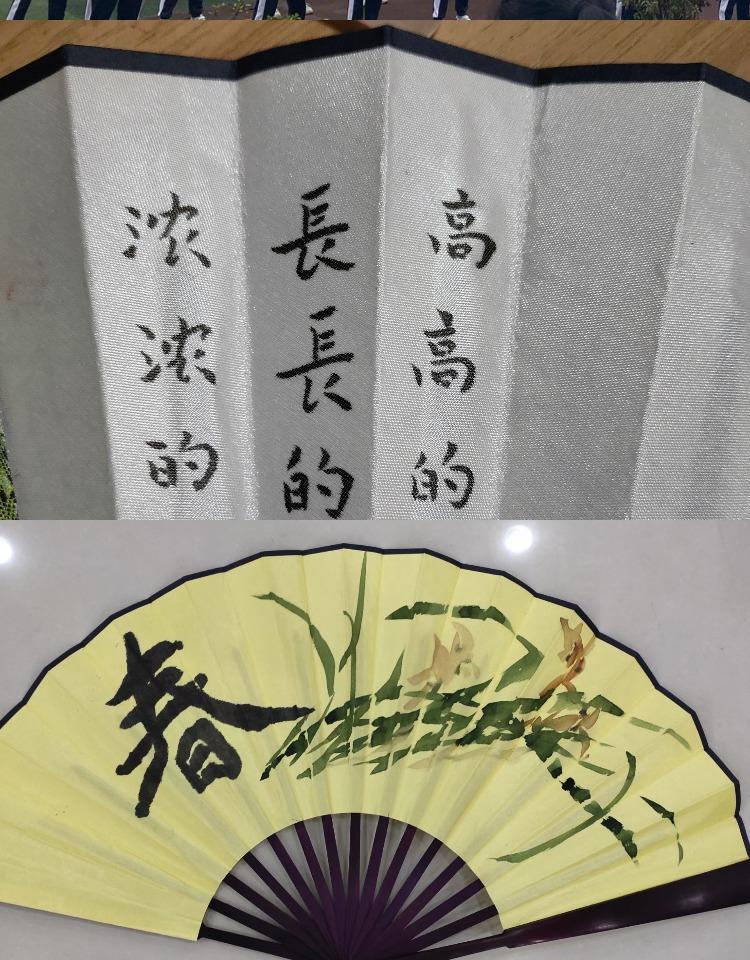 高高的
長長的
浓浓的
春